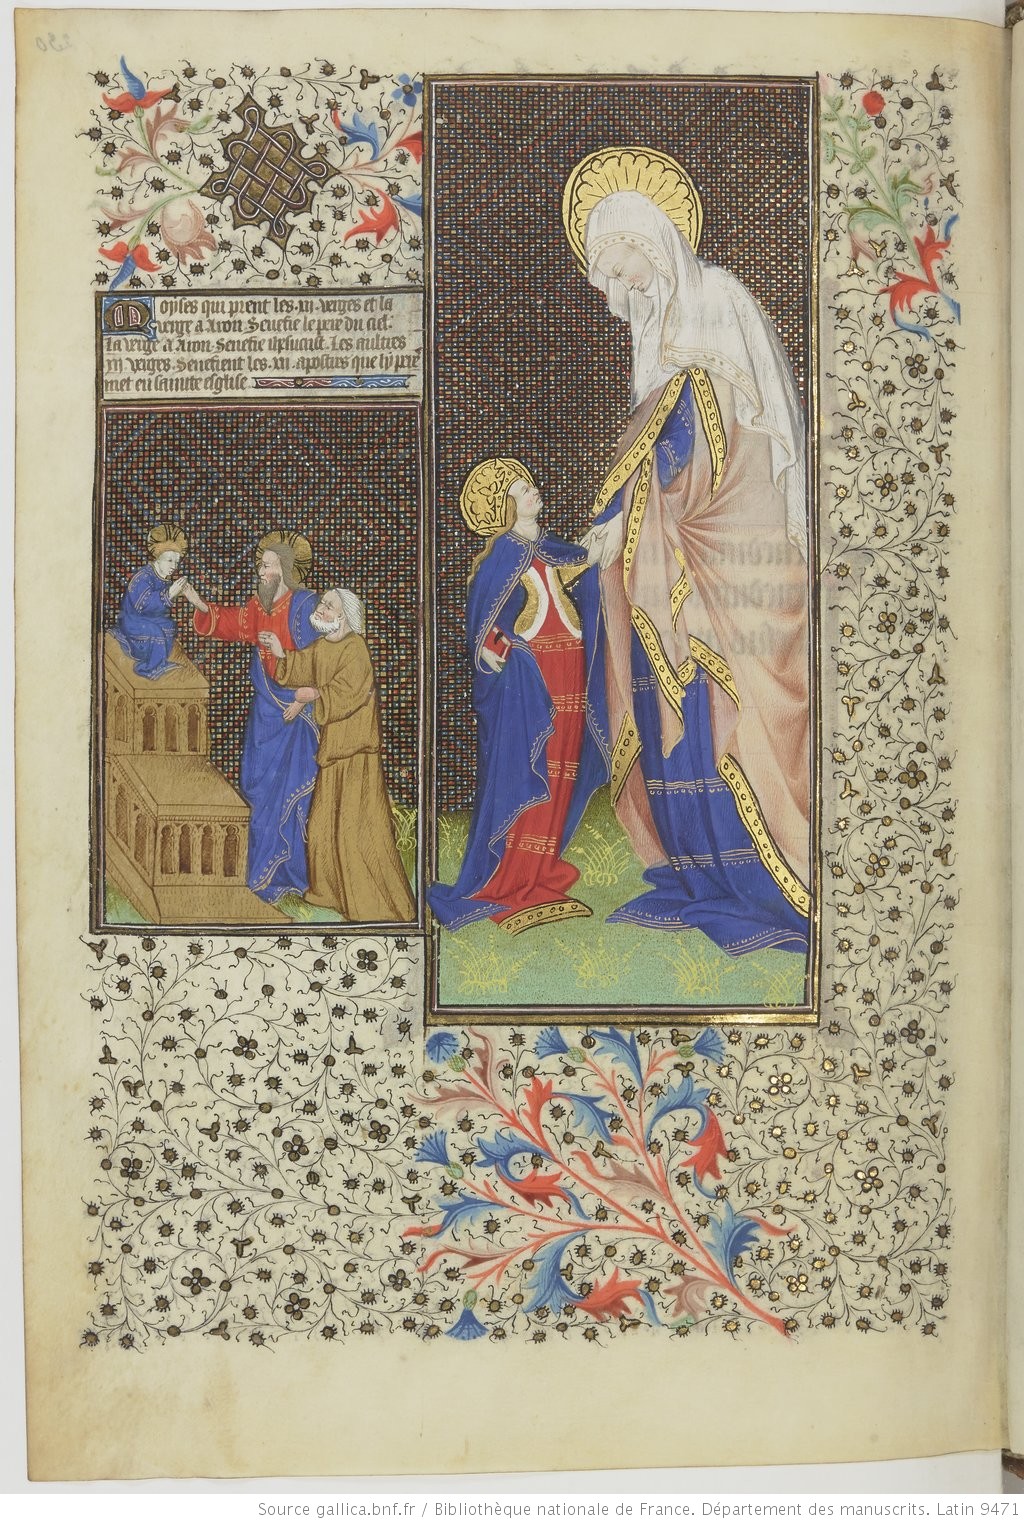 Moyses qui prent les .xii. verges et la
verge a Aron. Senefie le pere du ciel.
La verge a Aron. Senefie ihesucrist. Les aultres
.xii. verges. Senefient les .xii. apostres que
met en sainte esglise.
Source gallica.bnf.fr / Bibliothèque nationale de France. Département des manuscrits. Latin 9471